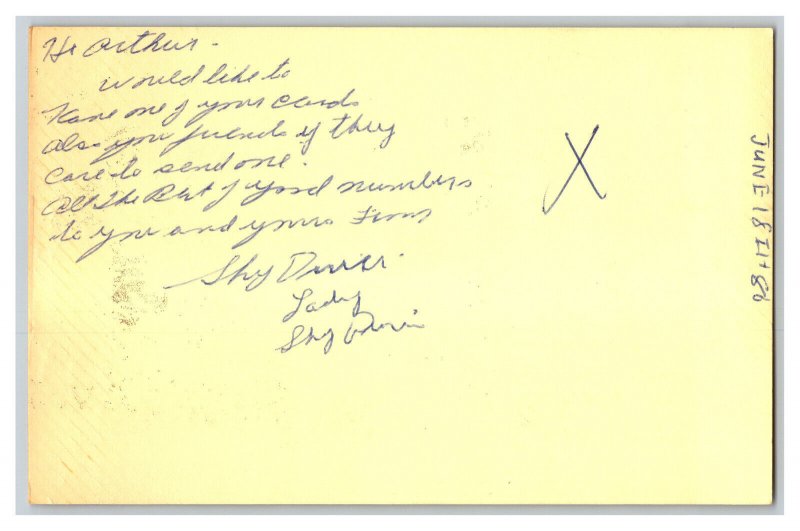 Hi Arthur -
would like to
Have one of your cards
also your friends if they
care to send one.
All The Best of good numbers
to you and yours From
Sky Diver.
Lady
Sky Diver
X
JUNE 18TH 86